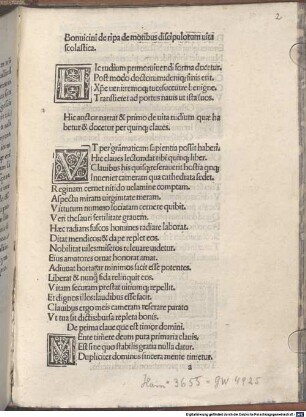 2
Bonuicini de ripa de moribus discipulorum uita
scolastica.
HIc rudium prime iuueni di forma docetur.
Post modo doctorum deniq; finis erit.
Xpe
Transferet ad portus nauis ut ista suos.
Hic auctor narrat & primo de uita rudium quæ ha
betur & docetur per quinq; claues.
VT per grāmaticam sapientia possit haberi.
Hic claues lector dat tibi quinq; liber.
Clauibus his quisquis reserauerit hostia quinq;
Inueniet cameram qua cathedrata sedet.
Reginam cernet nitido uelamine comptam.
Aspectu miram uirginitate meram.
Virtutum numero sociatam cernere quibit.
Veri thesauri fertilitate grauem.
Hæc radians fuscos homines radiare laborat.
Ditat mendicos & dape replet eos.
Nobilitat uiles miseros releuare uidetur.
Eius amatores ornat honorat amat.
Adiuuat hortatur minimos facit esse potentes.
Liberat & nunq; fida relinquit eos.
Vitam securam prestat uitiumq; repellit.
Et dignos illos laudibus esse facit.
Clauibus ergo meis cameram reserare parato
Vt tua sit dictis bursa repleta bonis.
De prima claue que est timor domini.
MEnte timere deum pura primaria clauis.
Est sine quo stabilis gratia nulla datur.
Dupliciter dominus sincera mente timetur.
a
Hain * 3655 = GW 4925